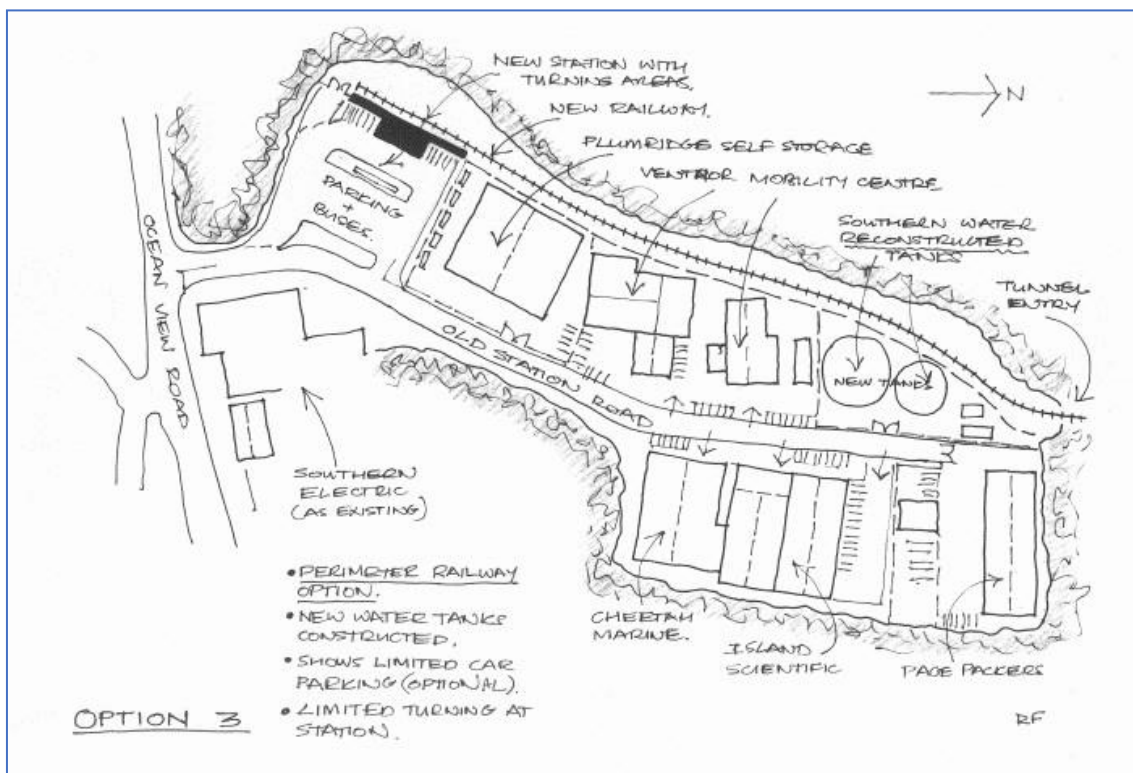 NEW STATION WITH
TURNING AREAS.
NEW RAILWAY.
N
PLUMRIDGE SELF STORAGE
VENTNOR MOBILITY CENTRE
SOUTHERN WATER
RECONSTRUCTED
TANKS
TUNNEL
ENTRY
PARKING
+
BUSES.
OCEAN VIEW ROAD
OLD STATION ROAD
NEW TANKS
SOUTHERN
ELECTRIC
(AS EXISTING)
• PERIMETER RAILWAY
OPTION.
• NEW WATER TANKS
CONSTRUCTED.
• SHOWS LIMITED CAR
PARKING (OPTIONAL).
• LIMITED TURNING AT
STATION.
CHEETAH
MARINE.
ISLAND
SCIENTIFIC
PAGE PACKERS
OPTION 3
RF